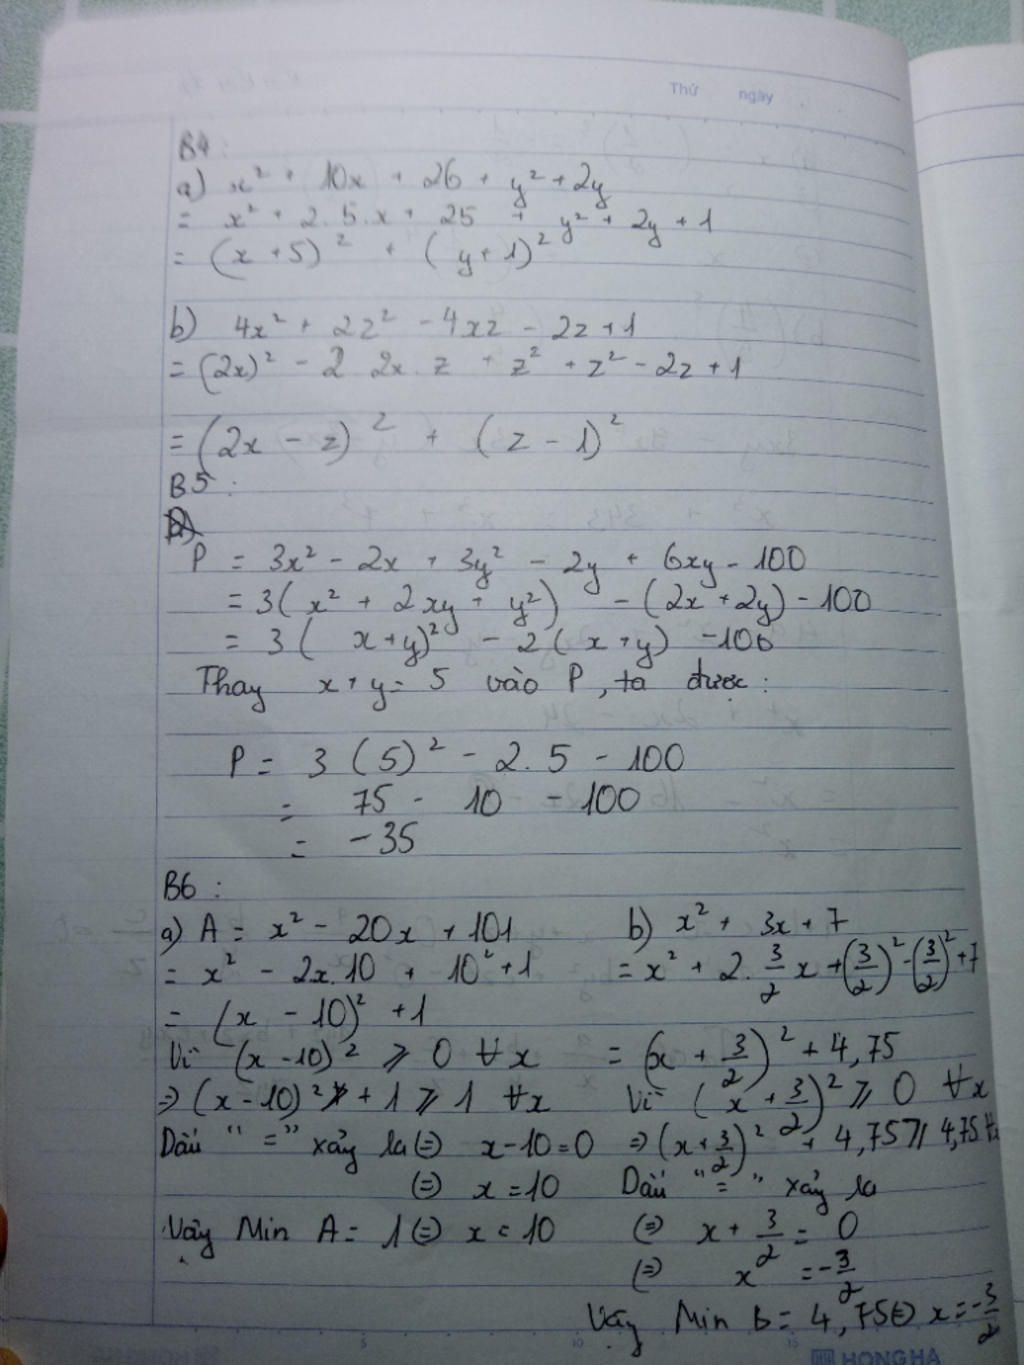 Thứ ngày
B4:
a) x² + 10x + 26 + y² + 2y
= x² + 2.5.x + 25 + y² + 2y + 1
= (x + 5)² + (y + 1)²
b) 4x² + 2z² - 4xz - 2z + 1
= (2x)² - 2 2x. z + z² + z² - 2z + 1
= (2x - z)² + (z - 1)²
B5:
P = 3x² - 2x + 3y² - 2y + 6xy - 100
= 3(x² + 2xy + y²) - (2x + 2y) - 100
= 3(x + y)² - 2(x + y) - 100
Thay x + y = 5 vào P, ta được:
P = 3(5)² - 2.5 - 100
= 75 - 10 - 100
= -35
B6:
a) A = x² - 20x + 101
= x² - 2x.10 + 10² + 1
= (x - 10)² + 1
Vì (x - 10)² ⩾ 0 ∀x
=> (x - 10)² + 1 ⩾ 1 ∀x
Dấu "=" xảy ra (=) x - 10 = 0
(=) x = 10
Vậy Min A = 1 (=) x = 10
b) x² + 3x + 7
= x² + 2. 3/2 x + (3/2)² - (3/2)² + 7
= (x + 3/2)² + 4,75
Vì (x + 3/2)² ⩾ 0 ∀x
=> (x + 3/2)² + 4,75 ⩾ 4,75 ∀x
Dấu "=" xảy ra
(=) x + 3/2 = 0
(=) x = -3/2
Vậy Min B = 4,75 (=) x = -3/2
5 10 15
HONG HA